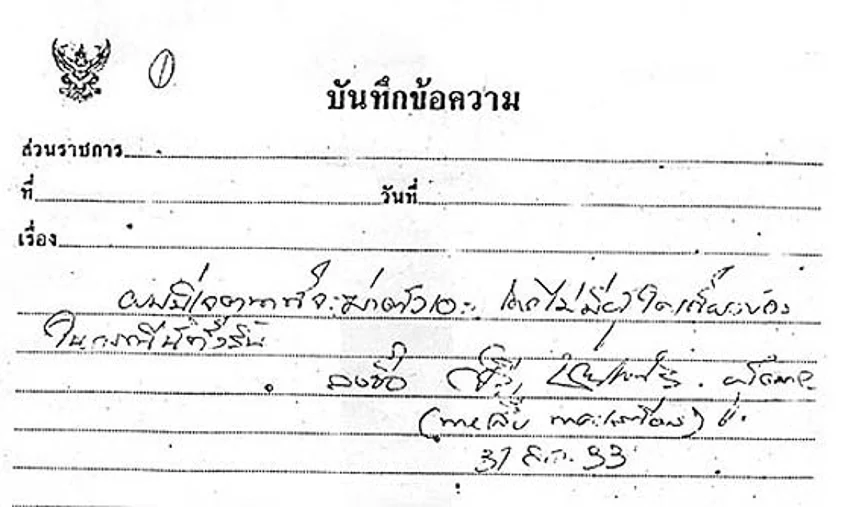 ①
บันทึกข้อความ
ส่วนราชการ
ที่ วันที่
เรื่อง
ผมมีเจตนาที่จะฆ่าตัวเอง โดยไม่มีผู้ใดเกี่ยวข้อง
ในกรณีนี้ทั้งสิ้น
ลงชื่อ
(นายสืบ นาคะเสถียร)
31 ส.ค. 33